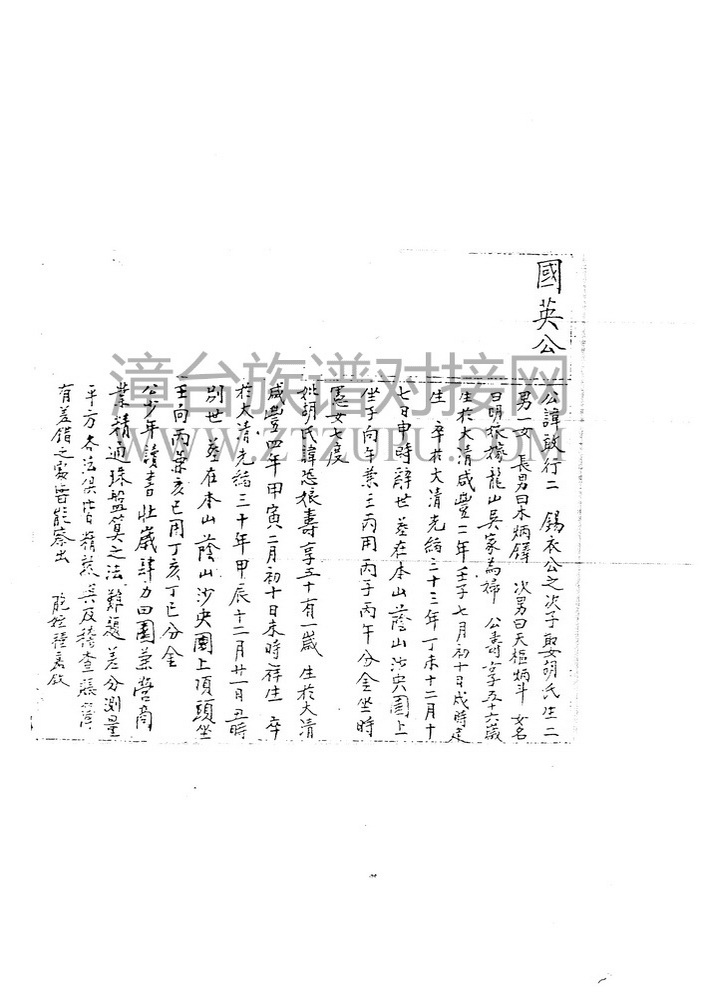 國英公
公諱啟行二 錫衣公之次子娶胡氏生二
男一女 長男曰木炳鐸 次男曰天樞炳斗 女名
曰明 龍山吳家為婦 公壽享五十六歲
生於大清咸豐二年壬子七月初十日戌時
生 卒於大清光緒三十三年丁未十二月十
七日申時辭世墓在本山蔭山沙央園上
坐子向午兼壬丙用丙子丙午分金坐時
憲女七度
妣胡氏諱恣娘壽享五十有一歲 生於大清
咸豐四年甲寅二月初十日未時祥生 卒
於大清光緒三十年甲辰十二月廿一日丑時
別世 墓在本山蔭山沙央園上項頭坐
壬向丙兼亥巳用丁亥丁巳分金
公少年讀書壯歲肆力田園兼營商
業精通珠盤算之法難題差分測量
平方各法俱皆精熟 其及稽查賬簿
有差錯之處皆能察出 胞姪
漳台族谱对接网
WWW.ZTZUPU.COM